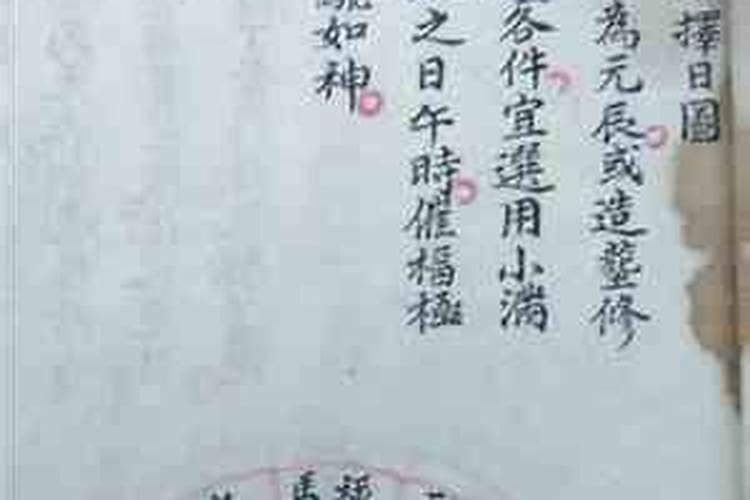 擇日圖
為元辰或造塟修
各件宜選用小滿
之日午時催福極
如神
馬 福